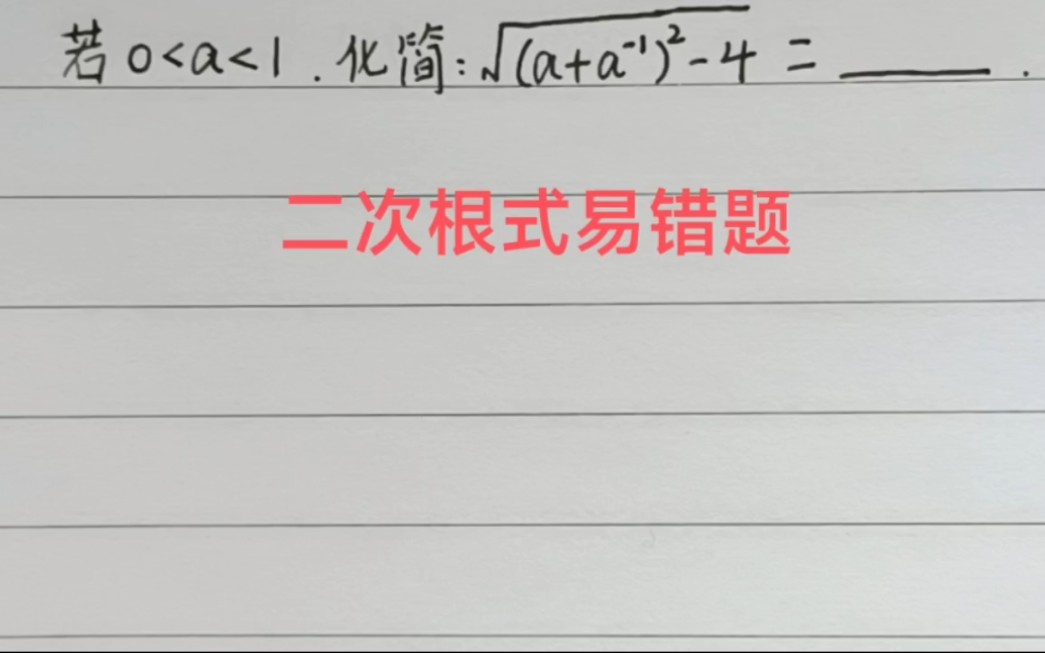 若 0<a<1. 化简: √((a+a⁻¹)²-4) = ______.
二次根式易错题